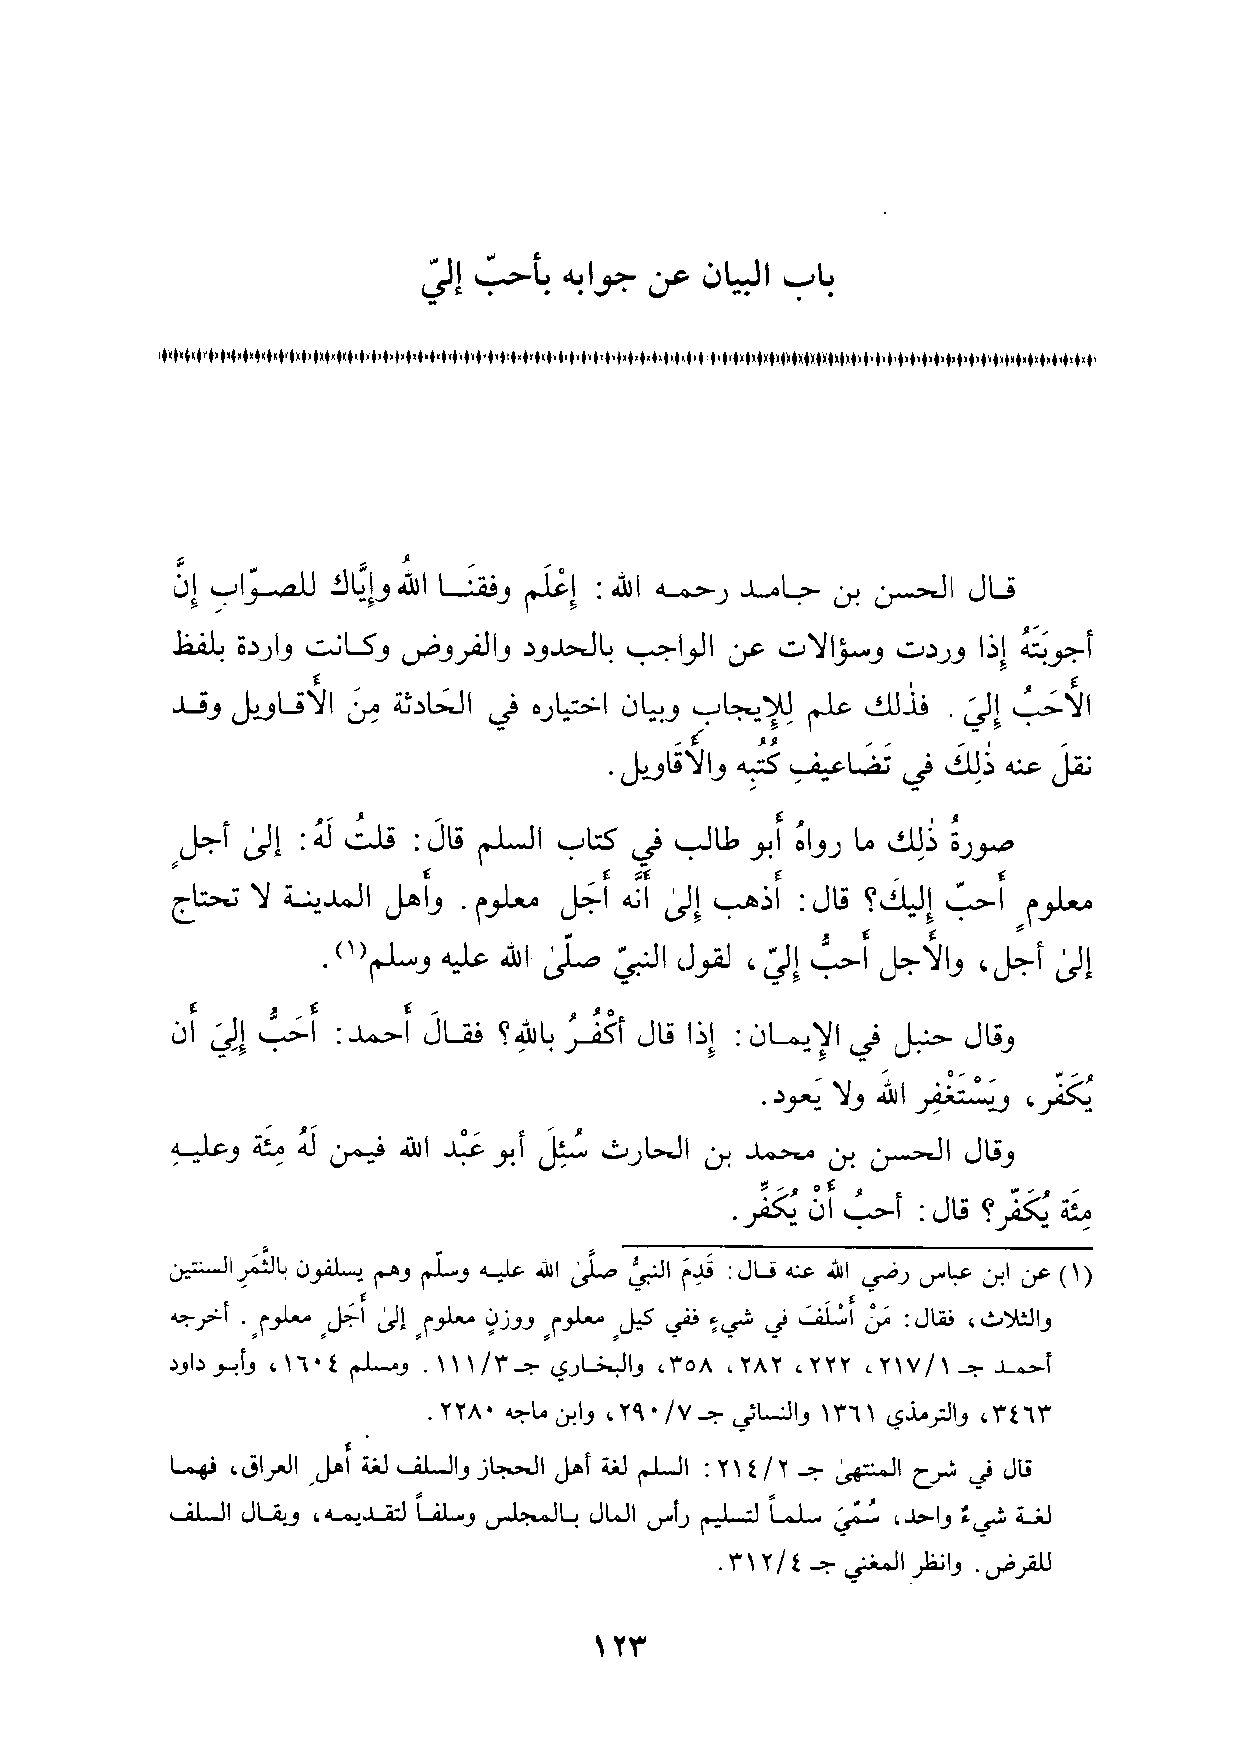 باب البيان عن جوابه بأحبّ إليّ
قال الحسن بن حامد رحمه الله : إعْلَم وفقنَا اللهُ وإيَّاك للصوّاب إنَّ
أجوبَتَهُ إذا وردت وسؤالات عن الواجب بالحدود والفروض وكانت واردة بلفظ
الأَحَبُ إليَ . فذلك علم لِلإيجاب وبيان اختياره في الحَادثة مِنَ الأَقاويل وقد
نقلَ عنه ذٰلِكَ في تَضَاعيفِ كُتُبِه والأَقَاويل.
صورةُ ذٰلك ما رواهُ أَبو طالب في كتاب السلم قالَ : قلتُ لَهُ : إلىٰ أجلٍ
معلومٍ أَحبّ إليكَ؟ قال: أَذهب إلىٰ أَنَّه أَجَل معلوم . وأَهل المدينة لا تحتاج
إلىٰ أجل، والأَجل أَحبُّ إليّ، لقول النبيّ صلّىٰ الله عليه وسلم(١).
وقال حنبل في الإيمان : إذا قال أكْفُر بالله؟ فقالَ أَحمد: أَحَبُّ إليَ أَن
يُكَفّر، ويَسْتَغْفِر اللهَ ولا يَعود.
وقال الحسن بن محمد بن الحارث سُئِلَ أبو عَبْد الله فيمن لَهُ مِئَة وعليه
مِئَة يُكَفّر؟ قال : أحبُ أَنْ يُكَفِّر.
(١) عن ابن عباس رضي الله عنه قال: قَدِمَ النبيُّ صلَّىٰ الله عليه وسلّم وهم يسلفون بالثَّمَر السنتين
والثلاث، فقال: مَنْ أَسْلَفَ في شيءٍ ففي كيلٍ معلومٍ ووزنٍ معلومٍ إلىٰ أَجَلٍ معلومٍ . أخرجه
أحمد جـ ٢١٧/١، ٢٢٢، ٢٨٢، ٣٥٨، والبخاري جـ ١١١/٣ . ومسلم ١٦٠٤، وأبو داود
٣٤٦٣، والترمذي ١٣٦١ والنسائي جـ ٢٩٠/٧، وابن ماجه ٢٢٨٠.
قال في شرح المنتهىٰ جـ ٢١٤/٢ : السلم لغة أهل الحجاز والسلف لغة أَهل العراق، فهما
لغة شيءٌ واحد، سُمّيَ سلماً لتسليم رأس المال بالمجلس وسلفاً لتقديمه، ويقال السلف
للقرض . وانظر المغني جـ ٣١٢/٤.
١٢٣